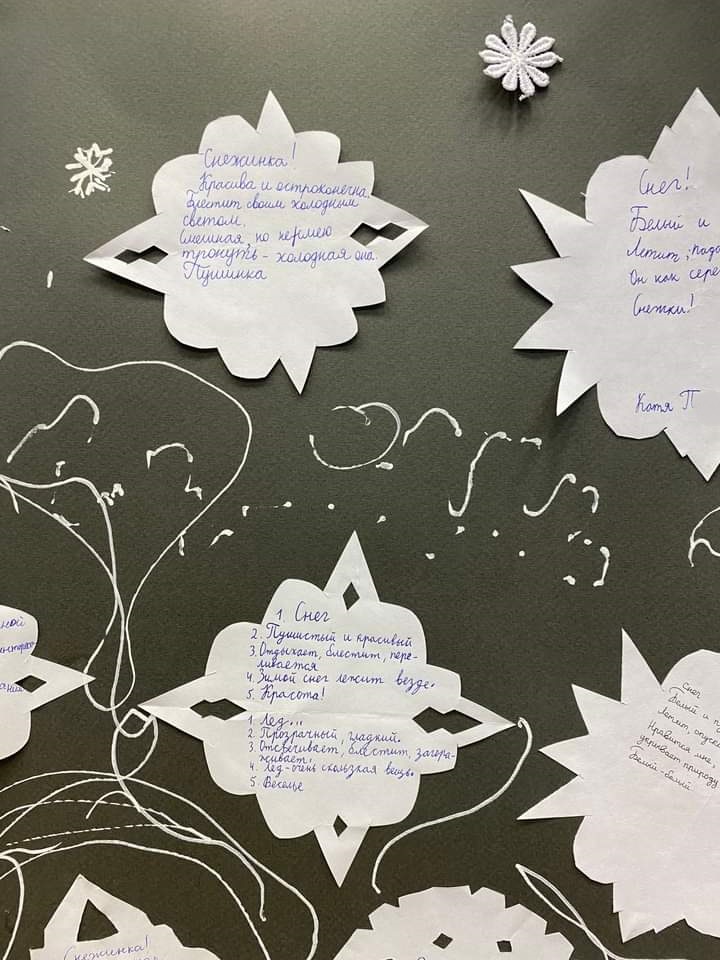 Снежинка!
Красива и остроконечна.
Блестит своим холодным
светом.
Смешная, но не умею
тронуть - холодная она.
Пушинка
Снег!
Белый и
Летит, пада
Он как сере
Снежки!
Катя П
1. Снег
2. Пушистый и красивый
3. Отдыхает, блестит, пере-
ливается
4. Зимой снег лежит везде.
5. Красота!
1 Лед...
2. Прозрачный, гладкий.
3. Отсвечивает, блестит, загора-
живает.
4. Лед - очень скользкая вещь.
5. Веселье
Снег
Белый и
Летит, опус
Нравится мне,
укрывает природу
Белый-белый
ной
Снежинка!